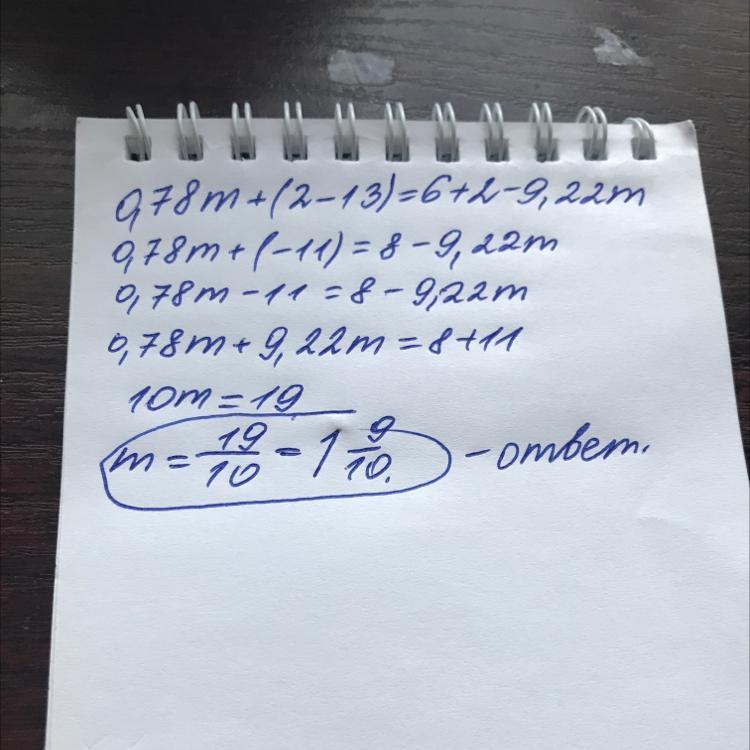 0,78m+(2-13)=6+2-9,22m
0,78m+(-11)=8-9,22m
0,78m-11=8-9,22m
0,78m+9,22m=8+11
10m=19
m=19/10=1 9/10. - ответ.